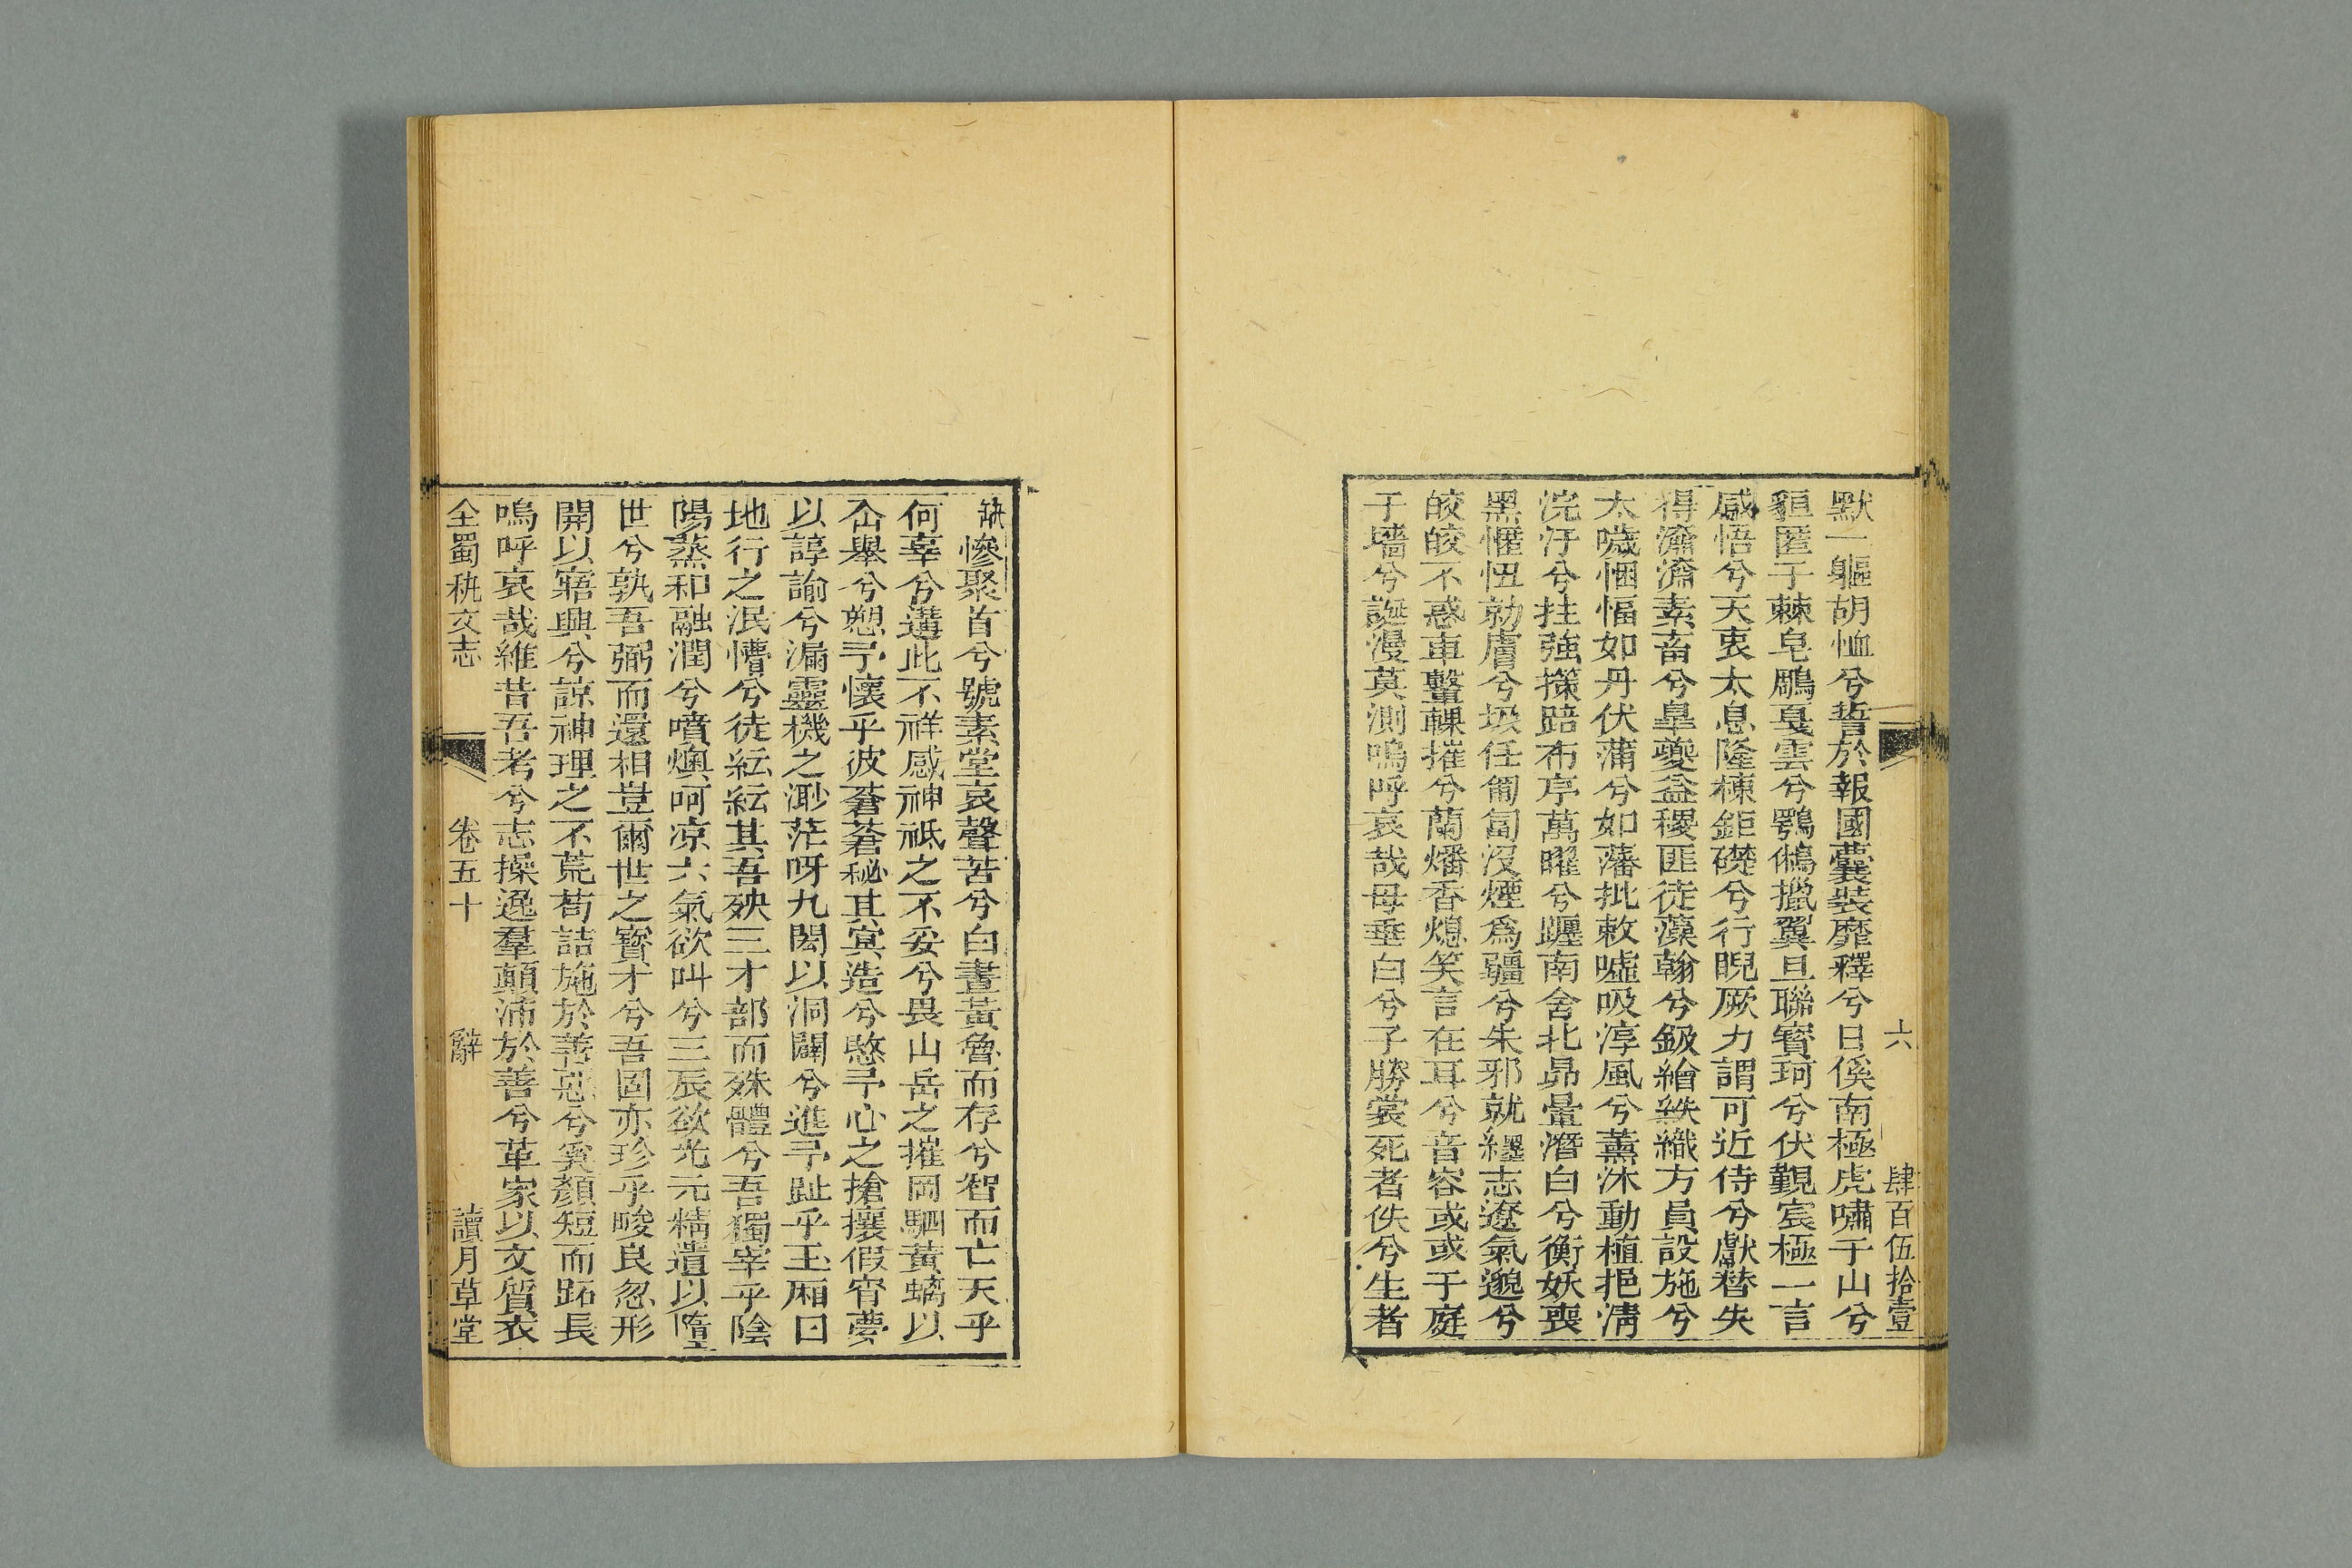 六　肆百伍拾壹
默一軀胡恤兮誓於報國囊裝靡釋兮日傒南極虎嘯于山兮
貆匿于棘皂鵰戛雲兮鶚鵂攧翼旦聯寶珂兮伏覲宸極一言
感悟兮天衷太息隆棟鉅礎兮行睨厥力謂可近侍兮獻替失
得瀹瀹素畜兮皐夔益稷匪徒藻翰兮鈒繪紩織方員設施兮
太噦悃愊如丹伏蒲兮如藩批敕噓吸淳風兮薰沐動植挹清
浣汙兮拄強擈踣布亭萬曜兮躔南舍北昴暈潛白兮衡妖喪
黑懼忸勍膚兮圾任匍匐沒煙為疆兮朱邪就纆志遼氣邈兮
皎皎不惑車鑿輠摧兮蘭燔香熄笑言在耳兮音容或或于庭
于牆兮誕漫莫測嗚呼哀哉母垂白兮子勝裳死者佚兮生者
缺慘聚首兮號素堂哀聲苦兮白晝黃魯而存兮智而亡天乎
何辜兮遘此不祥感神祇之不妥兮畏山岳之摧岡駟黃螭以
夻舉兮愬予懷乎彼蒼蒼秘其冥造兮愍予心之搶攘假宵夢
以諄諭兮漏靈機之渺茫呀九閎以洞闢兮進予趾乎玉廂曰
地行之泯懵兮徒紜紜其吾殃三才部而殊體兮吾獨宰乎陰
陽蒸和融潤兮噴燠呵凉六氣欲叫兮三辰欲光元精遺以墮
世兮孰吾弼而還相豈爾世之寶才兮吾固亦珍乎畯良忽形
開以寤興兮諒神理之不荒苟詰施於善惡兮奚顏短而跖長
嗚呼哀哉維昔吾考兮志操逸羣顛沛於善兮革家以文質衣
全蜀秇文志　卷五十　辭　讀月草堂